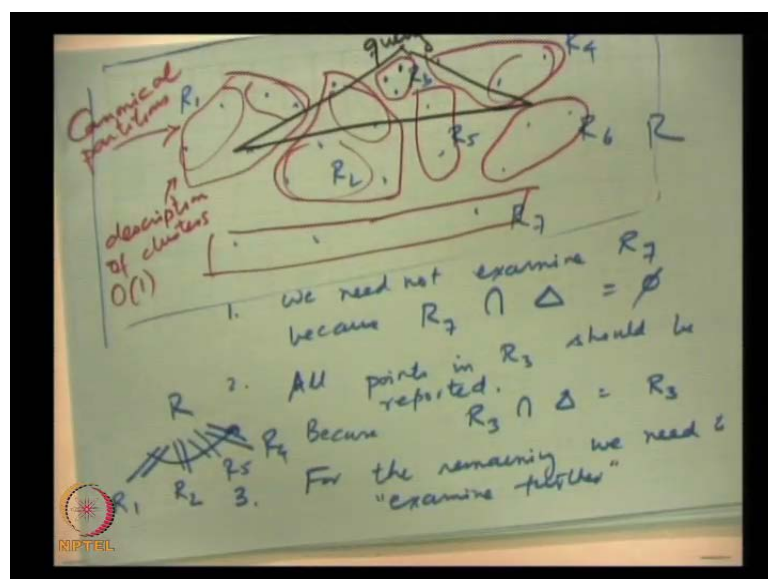 query
R4
Canonical
partitions
R1
R3
R5
R6
R
R2
description
of clusters
O(1)
R7
1. We need not examine R7
because R7 ∩ Δ = ∅
2. All points in R3 should be
reported.
Because R3 ∩ Δ = R3
R
R1 R2 R5 R4
3. For the remaining we need
"examine further"
NPTEL